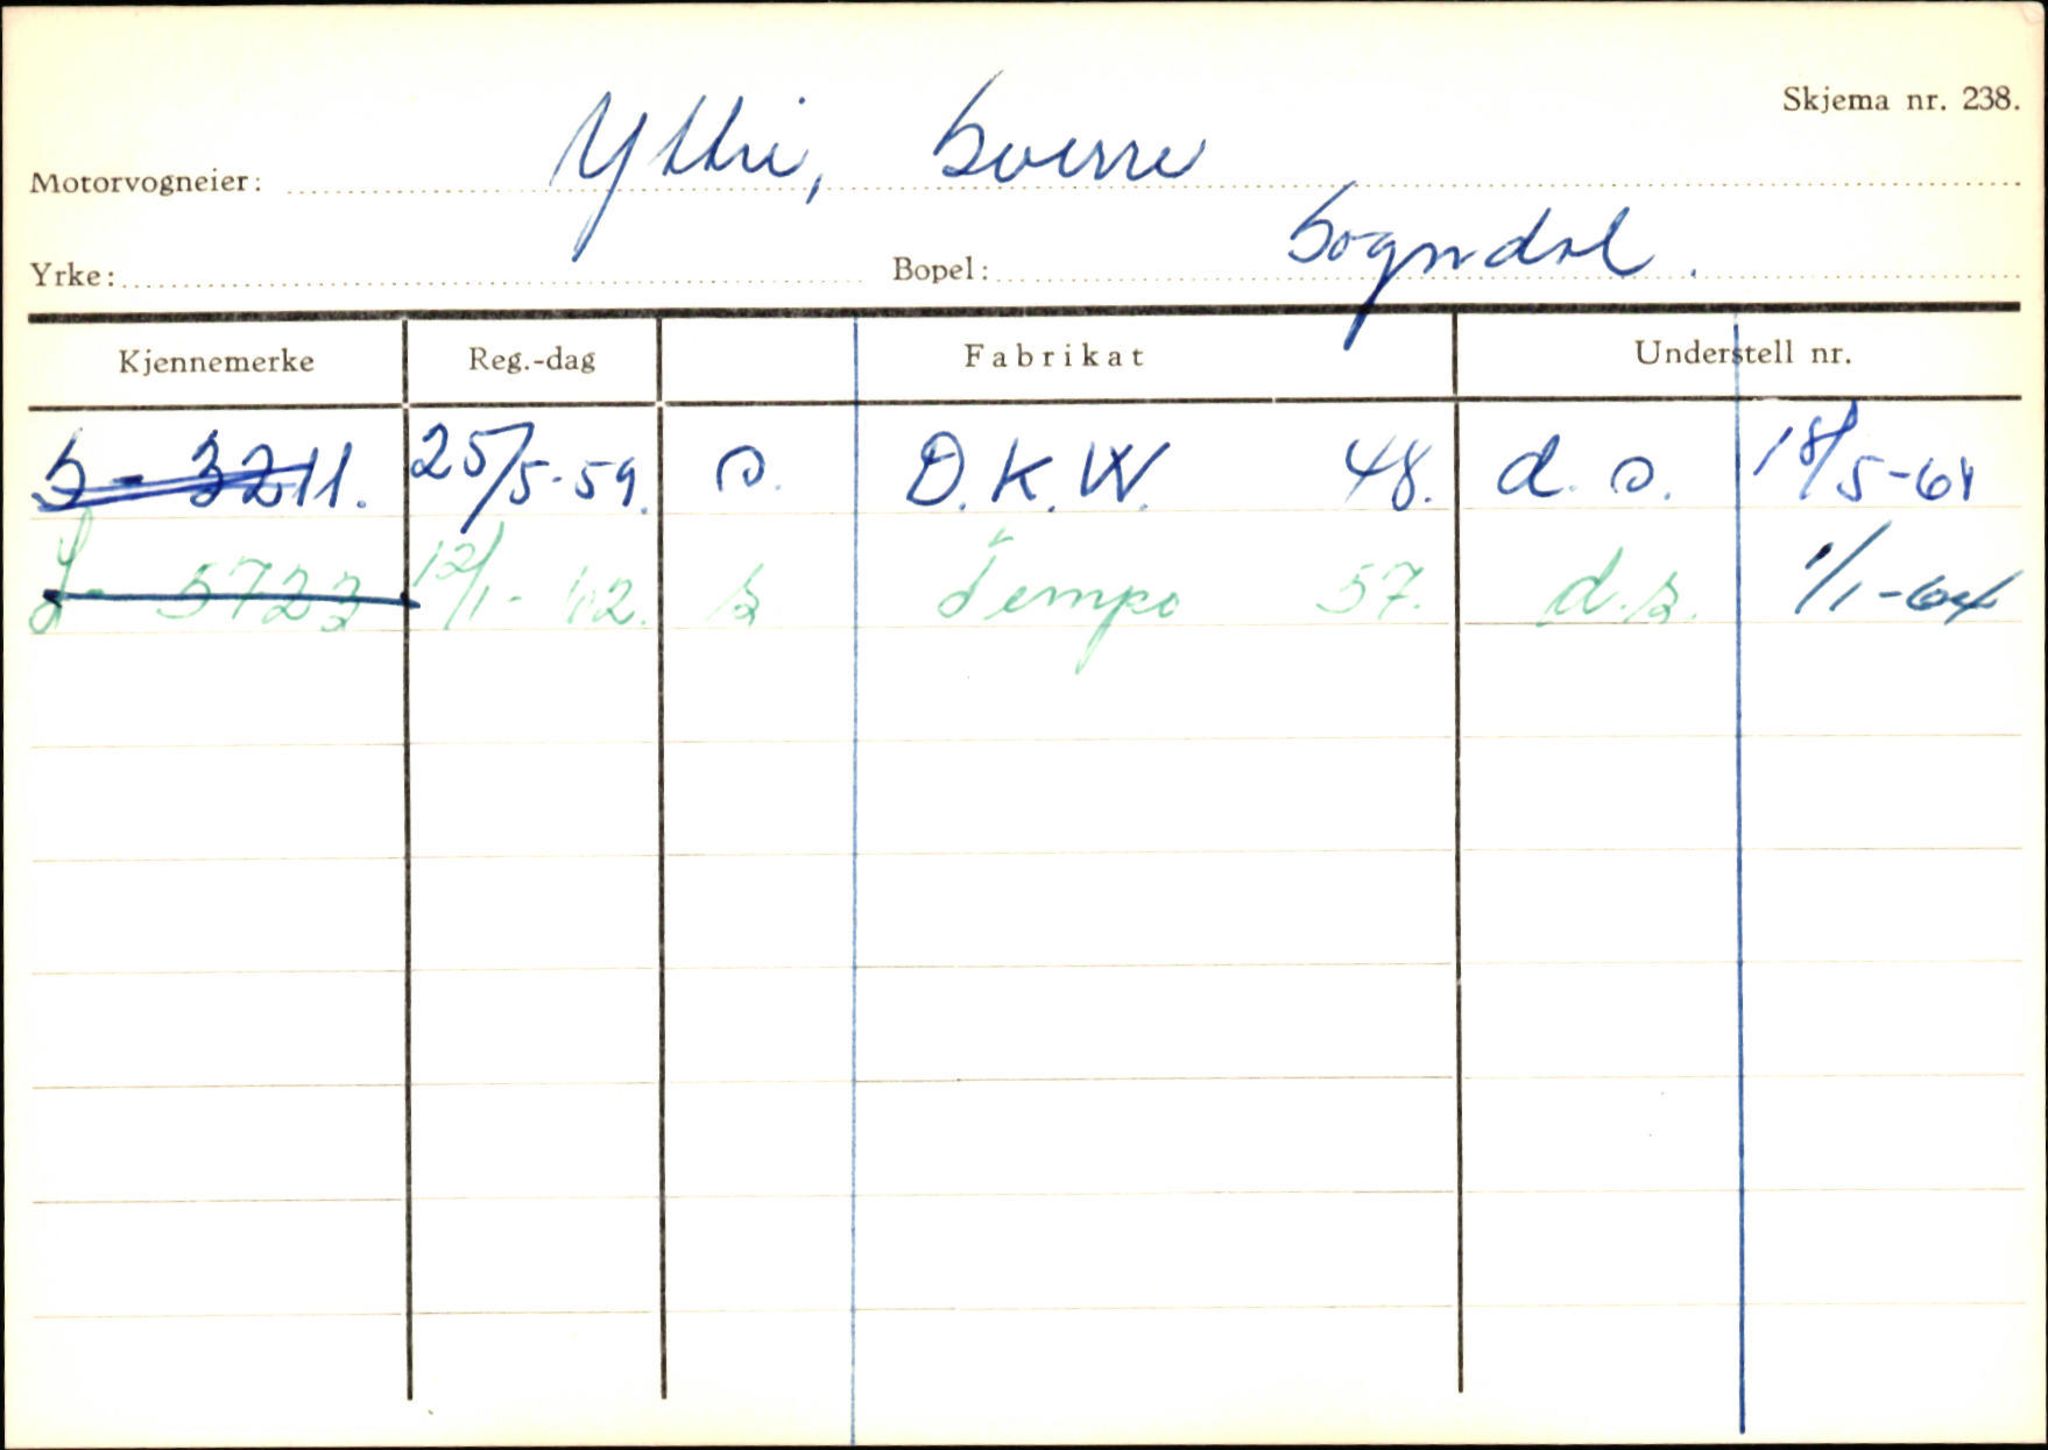 Skjema nr. 238.
Motorvogneier: Yttri, Sverre
Yrke: Bopel: Sogndal.
Kjennemerke Reg.-dag Fabrikat Understell nr.
S-3211. 25/5-59. s. D.K.W. 48. d. s. 18/5-61
S-5723 12/1-62. s Tempo 57. d.s. 1/1-64